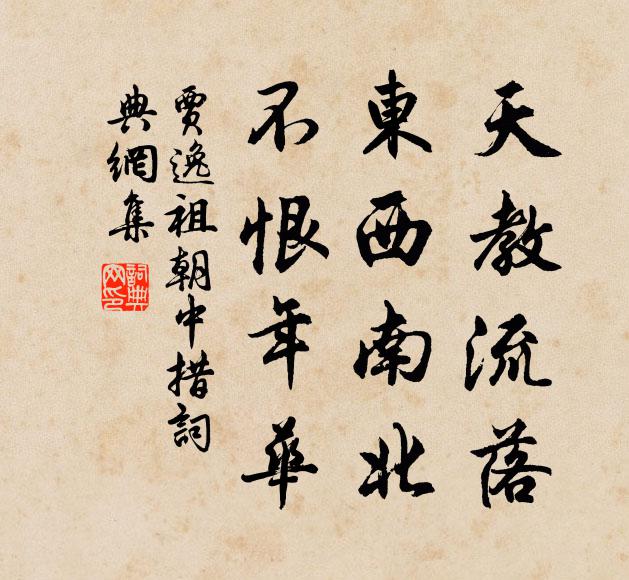 天教流落
東西南北
不恨年華
賈逸祖朝中措詞
典網集
詞典
网印